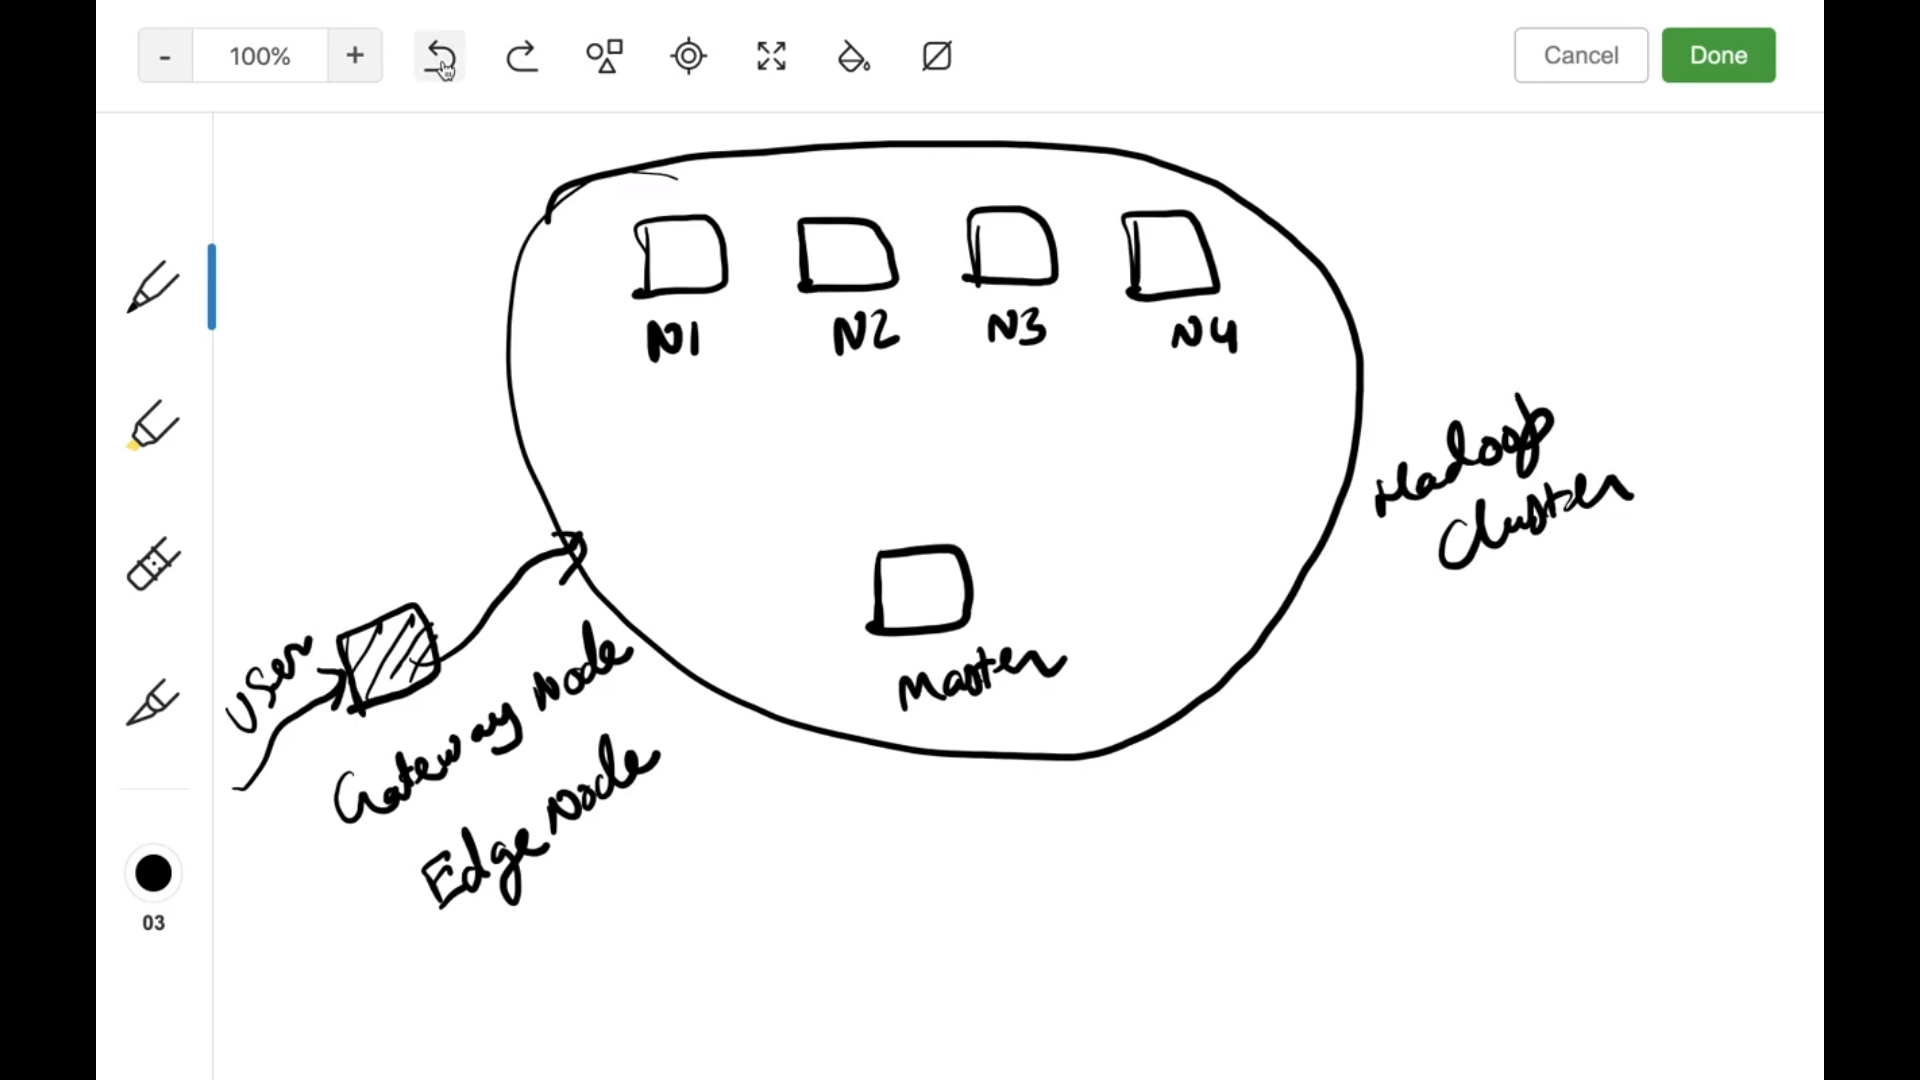 - 100% +
Cancel
Done
N1 N2 N3 N4
Hadoop
Cluster
Master
User
Gateway Node
Edge Node
03